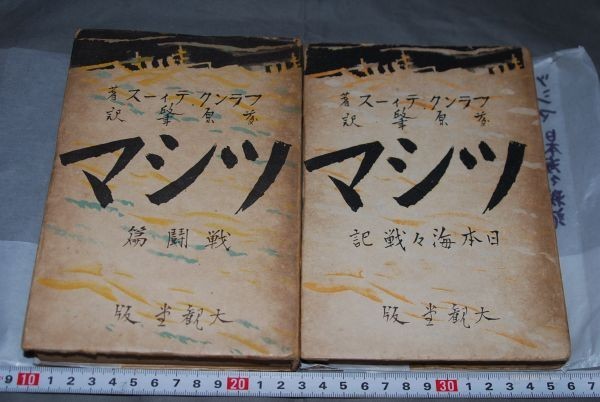 フランク・ティース 著
藤原 肇 訳
ツシマ
戦闘篇
大観堂版
フランク・ティース 著
藤原 肇 訳
ツシマ
日本海々戦記
大観堂版
ツシマ 日本海
9 10 1 2 3 4 5 6 7 8 9 20 1 2 3 4 5 6 7 8 9 30 1 2 3 4 5 6